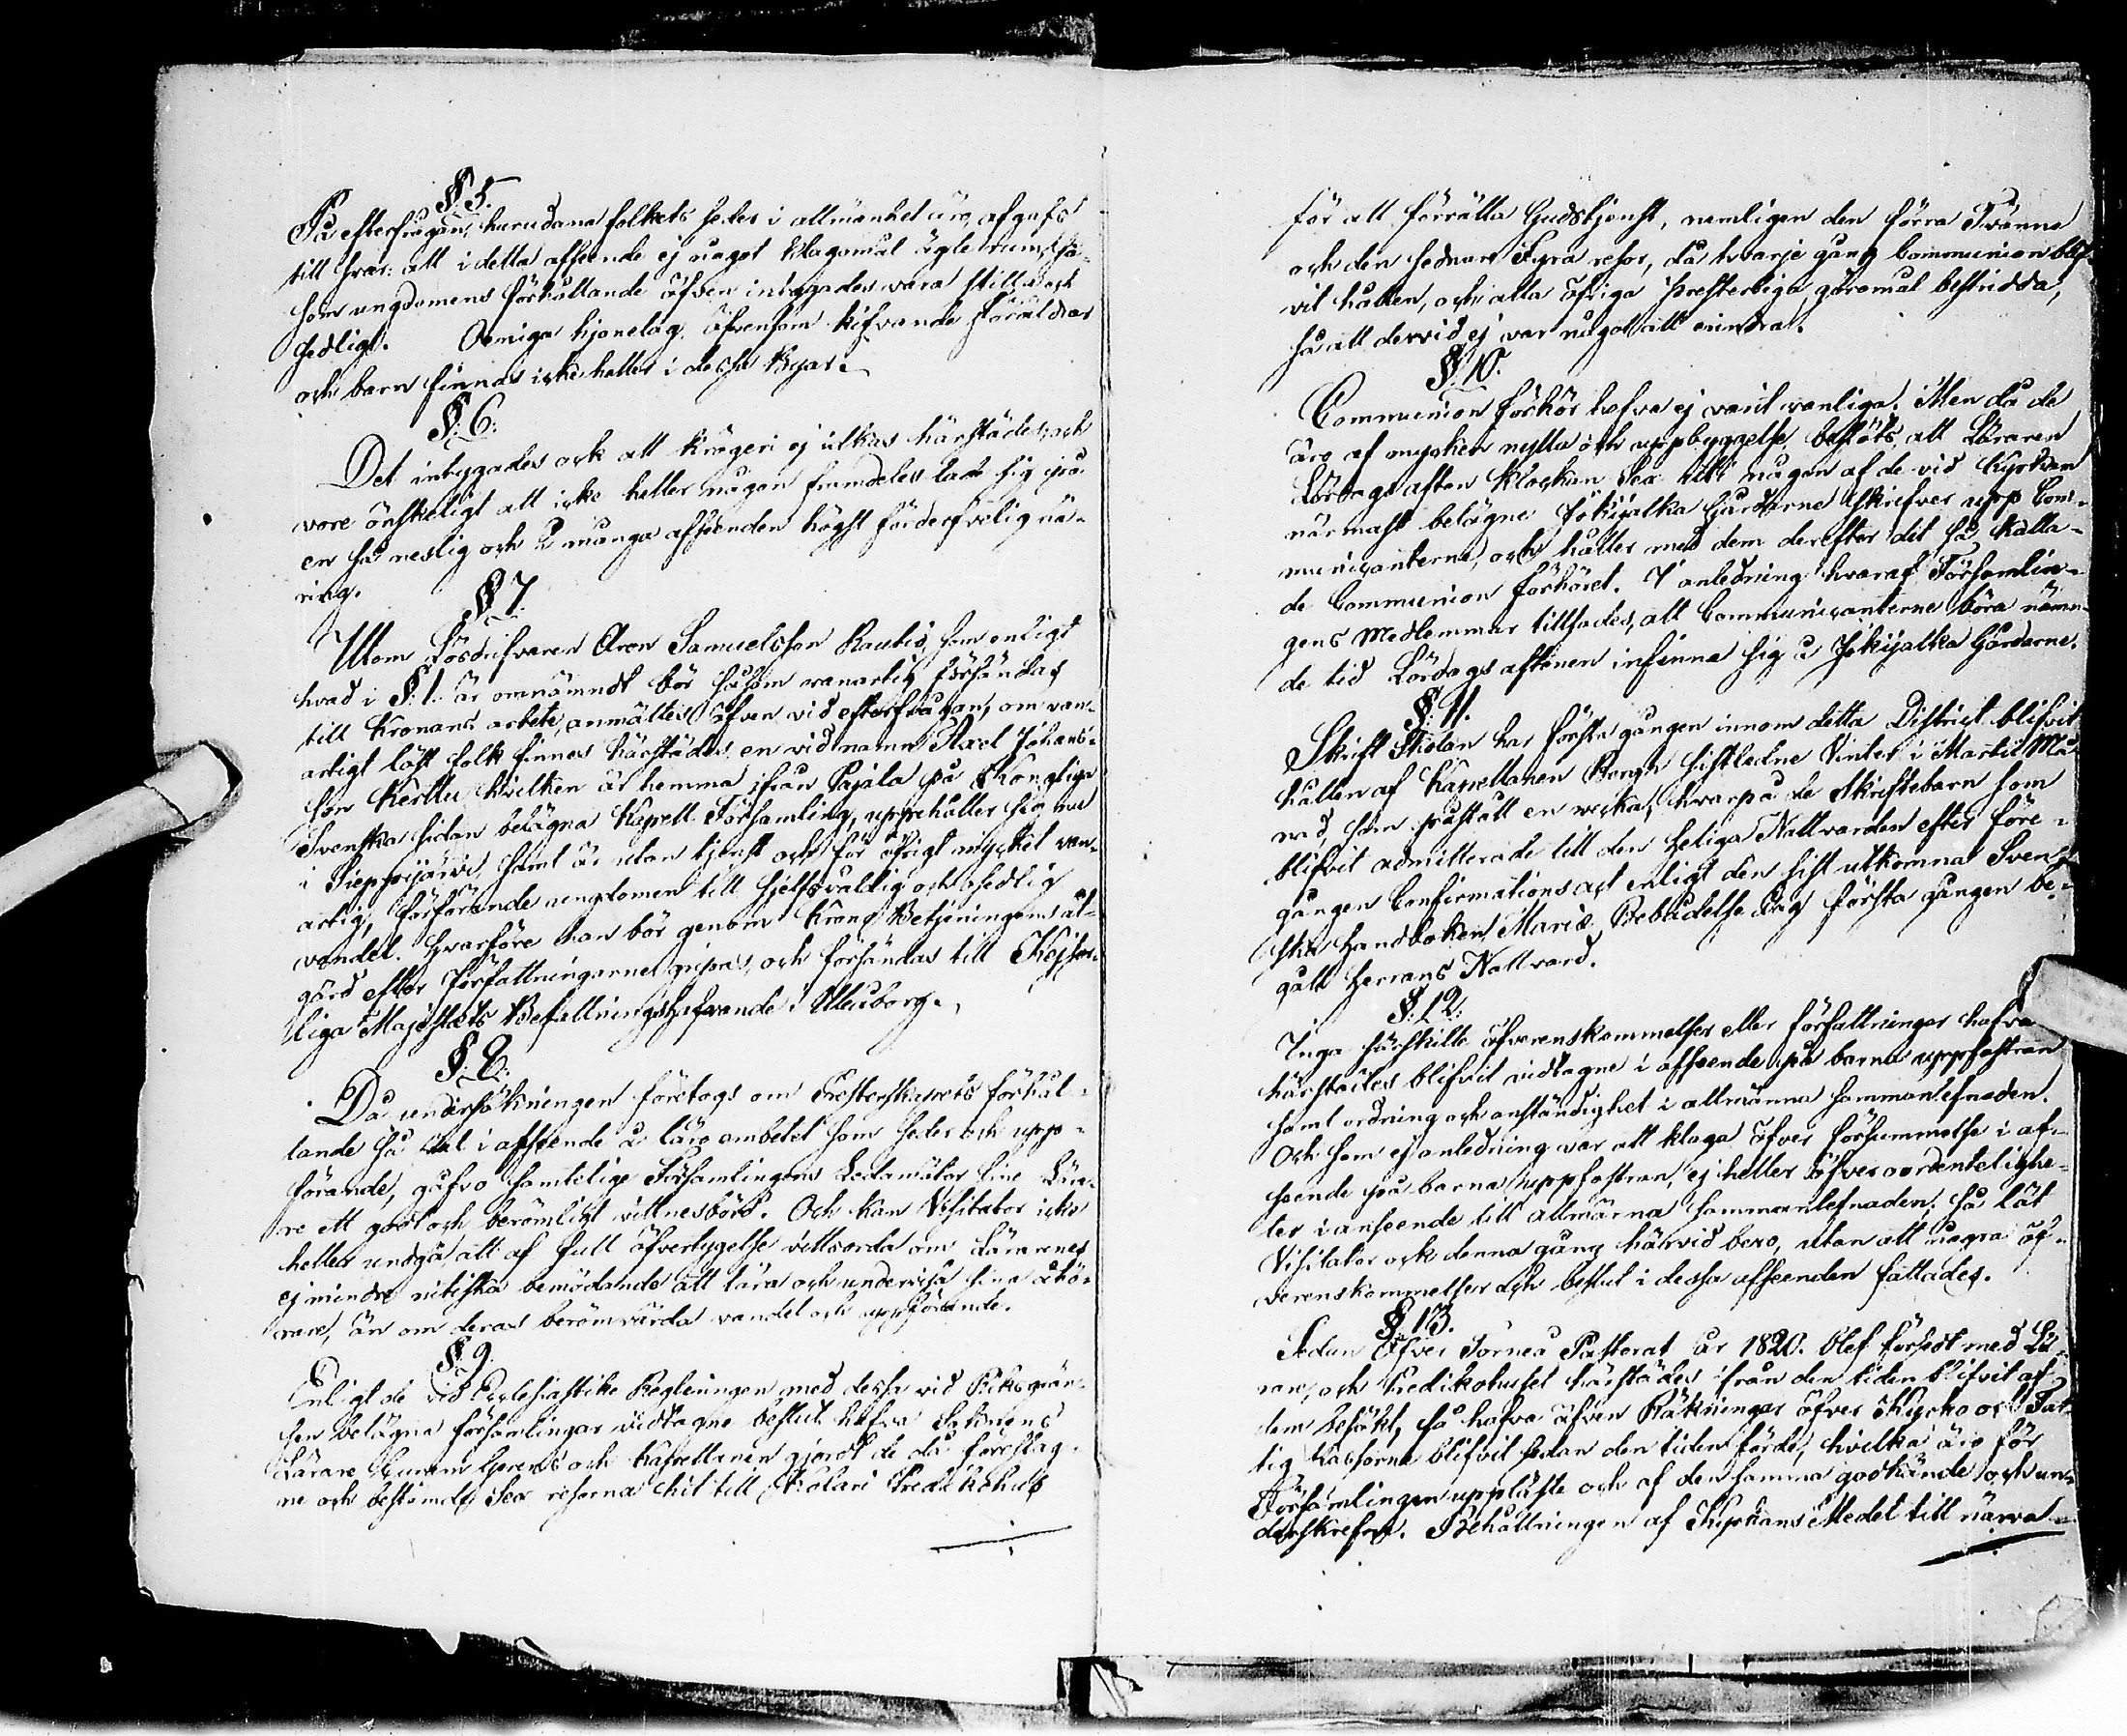 §. 5.
På efterfrågan, hurudana folkets seder i allmänhet äro, afgafs
till svar: att i detta afseende ej något klagomål ägde rum, så-
som ungdomens förhållande äfven intygades vara stilla och
sedligt. Oeniga hjonelag, äfvensom kifvande Föräldrar
och barn finnas icke heller i dessa Byar.
§. 6.
Det intygades ock att krögeri ej idkas härstädes, och
vore önskeligt att icke heller någon framdeles lade sig på
en så neslig och i många afseenden högst förderfvelig nä-
ring.
§. 7.
Utom Lösdrifvaren Aron Samuelsson Rautio, som enligt
hvad i §. 1. är omnämndt bör såsom vanartig försändas
till Kronans arbete, anmältes äfven vid efterfrågan, om van-
artigt löst folk finnes härstädes, en vid namn Axel Johans-
son Kerttu, hvilken är hemma ifrån Pajala på Kongliga
Svenska sidan belägna Kapell Församling, uppehåller sig nu
i Sieppijärvi samt är utan tjenst och för öfrigt mycket van-
artig, förförande ungdomen till sjelfsvåldig och osedlig
vandel. Hvarföre han bör genom Krono Betjeningens åt-
gärd efter Författningarne gripas, och försändas till Kejser-
liga Majestæts Befallningshafvande i Uleåborg.
§. 8.
Då undersökningen företogs om Presterskapets förhål-
lande så väl i afseende å läro embetet som seder och upp-
förande, gåfvo samtelige Församlingens Ledamöter sine Lära-
re ett godt och berömligt vittnesbörd. Och kan Visitator icke
heller undgå, att af full öfvertygelse vittsorda om Lärarenes
ej mindre nitiska bemödande att lära och undervisa sina åhö-
rare, än om deras berömvärda vandel och uppförande.
§. 9.
Enligt de vid Ecclesiastike Regleringen med dessa vid Riksgrän-
sen belägna församlingar vidtagne beslut hafva Saknens
Lärare, Herrens och Kapellanen gjordt de då föreslag-
ne och bestämde Sex resorna hit till Kolari Predikohus
för att förrätta Gudstjenst, nemligen den förra Tvänne
och den sednare Fyra resor, då hvarje gång Communion blif-
vit hållen, och alla öfriga presterliga göromål bestridda,
så att dervid ej var något att erindra.
§. 10.
Communion förhör hafva ej varit vanliga. Men då de
äro af mycken nytta och uppbyggelse beslöts, att Läraren
Lördags afton klockan Sex uti någon af de vid kyrkan
närmast belägne Jokijalka Gårdarne skrifver upp Com-
municanterne, och håller med dem derefter det så kalla-
de Communion förhöret. I anledning hvaraf Församlin-
gens Medlemmar tillsades, att Communicanterne böra nämn-
de tid Lördags aftonen infinna sig i Jokijalka Gårdarne.
§. 11.
Skrift Skolan har första gången innom detta District blifvit
hållen af Kapellanen Bergh sistledne Vinter i Martii Må-
nad, som påstått en vecka, hvarpå de Skriftebarn som
blifvit admitterade till den Heliga Nattvarden efter före-
gången Confirmations act enligt den sist utkomna Sven-
ska Handboken Mariæ Bebådelse Dag första gången be-
gått Herrans Nattvard.
§. 12.
Inga särskilte öfverenskommelser eller författningar hafva
härstädes blifvit vidtagne i afseende på barna uppfostran
samt ordning och anständighet i allmänna sammanlefnaden.
Och som ej anledning var att klaga öfver försummelse i af-
seende på barna uppfostran, ej heller öfver oordentelighe-
ter i anseende till allmänna sammanlefnaden, så lät
Visitator ock denna gång härvid bero, utan att några öf-
verenskommelser och beslut i dessa afseenden fattades.
§. 13.
Sedan Öfver Torneå Pastorat år 1820. blef försedt med Lä-
rare, och Predikohuset härstädes ifrån den tiden blifvit af
dem besökt, så hafva äfven Räkningar öfver Kyrko och Fat-
tig Kassorne blifvit sedan den tiden förde, hvilka äro för
Församlingen uppläste och af den samma godkände och un-
derskrefne. Behållningen af Kyrkans Medel till närva-